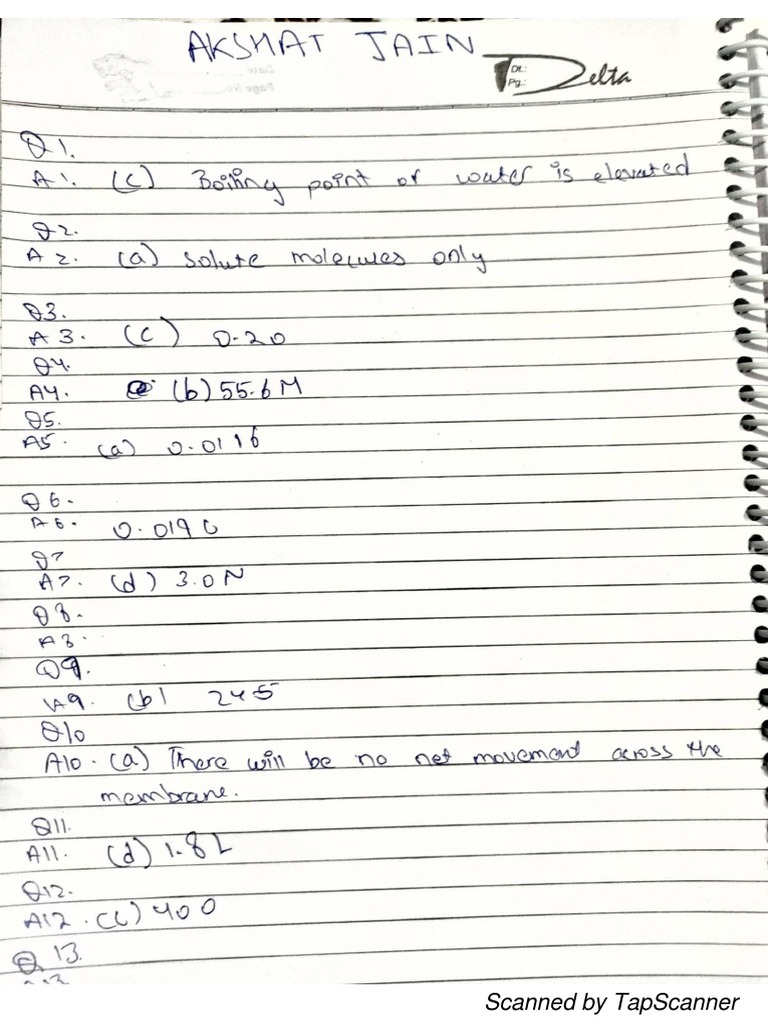 AKSHAT JAIN
Dt.:
Pg.:
Delta
Q1.
A1. (c) Boiling point of water is elevated
Q2.
A2. (a) solute molecules only
Q3.
A3. (c) 0.20
Q4.
A4. (b) 55.6 M
Q5.
A5. (a) 0.0116
Q6.
A6. 0.0196
Q7
A7. (d) 3.0 N
Q8.
A8.
Q9.
A9. (b) 245
Q10
A10. (a) There will be no net movement across the
membrane.
Q11.
A11. (d) 1.8 L
Q12.
A12. (c) 400
Q 13.
Scanned by TapScanner